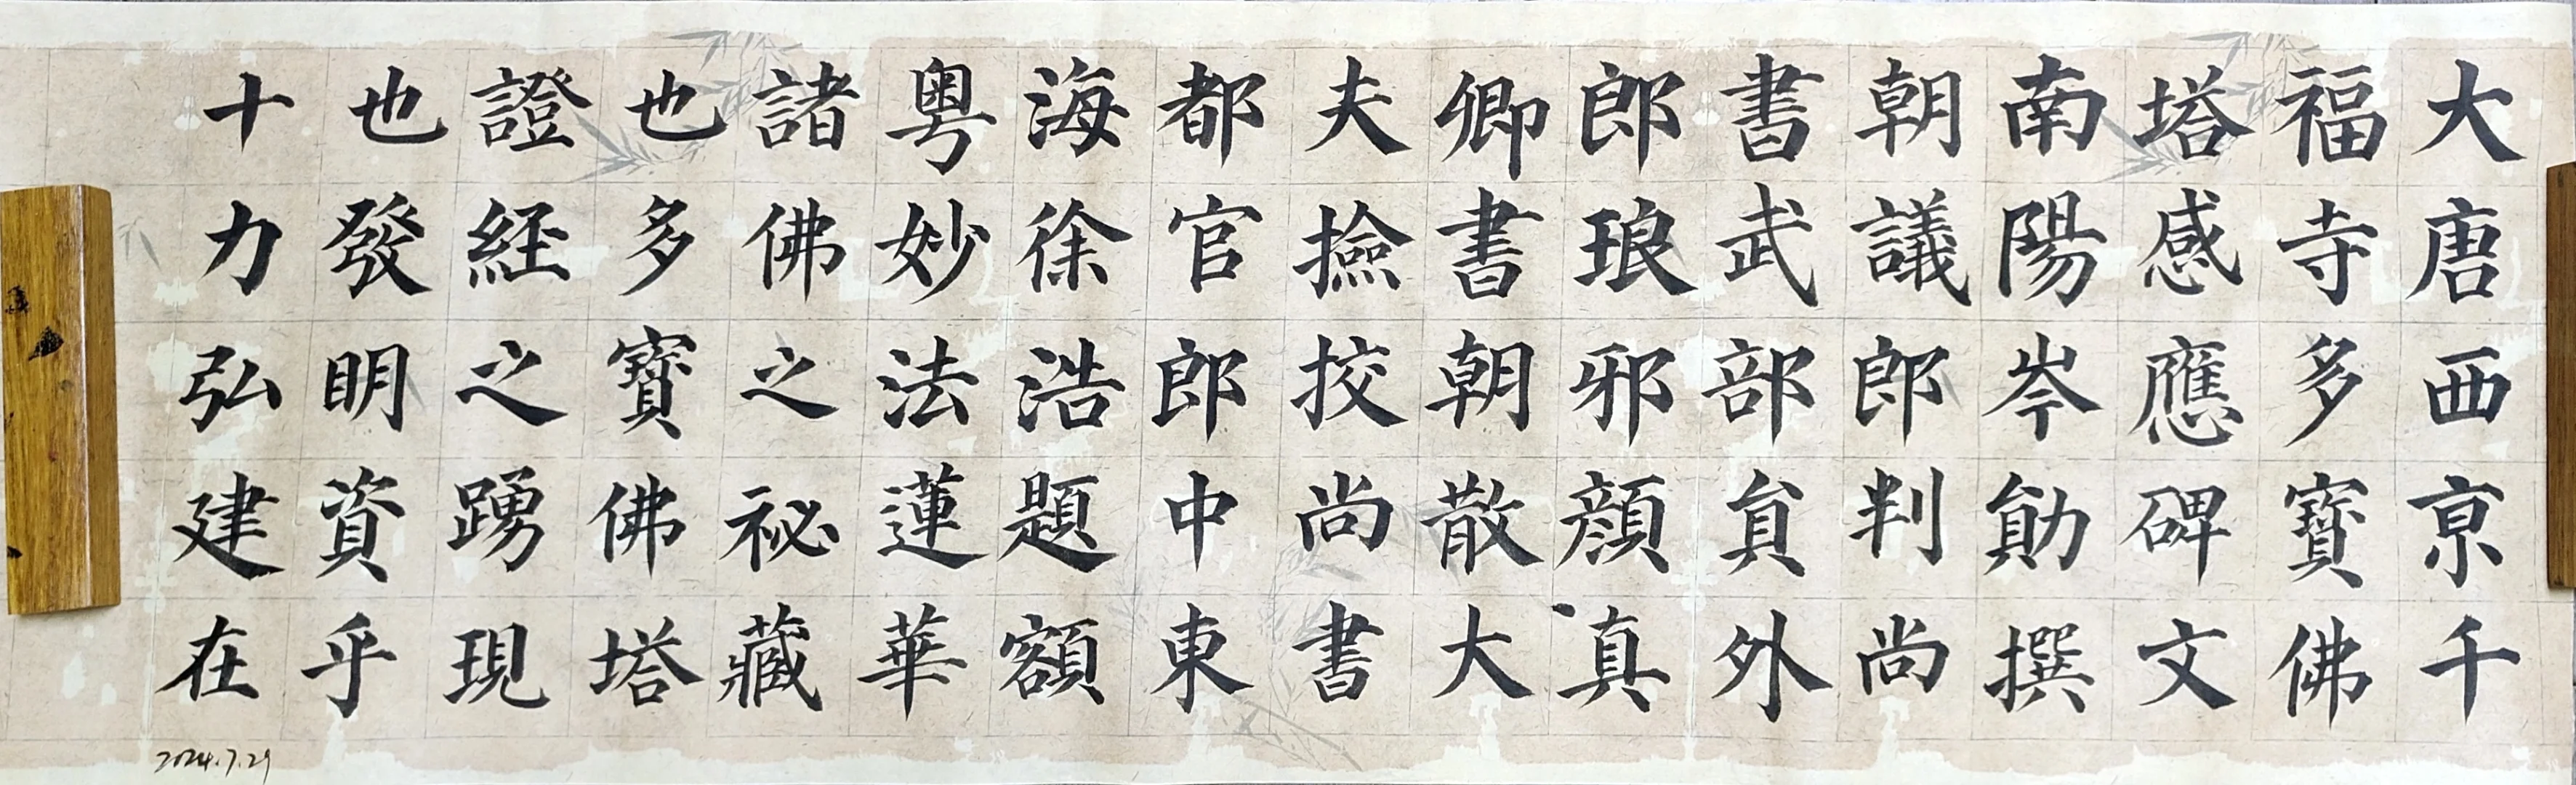 大唐西京千
福寺多寶佛
塔感應碑文
南陽岑勛撰
朝議郎判尚
書武部員外
郎琅邪顏真
卿書朝散大
夫撿挍尚書
都官郎中東
海徐浩題額
粵妙法蓮華
諸佛之祕藏
也多寶佛塔
證經之踴現
也發明資乎
十力弘建在
2024.7.29